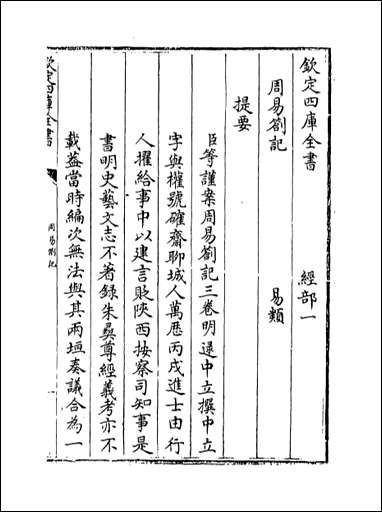 欽定四庫全書　經部一
周易劄記　易類
提要
臣等謹案周易劄記三卷明逯中立撰中立
字與權號確齋聊城人萬歷丙戌進士由行
人擢給事中以建言貶陝西按察司知事是
書明史藝文志不著録朱彝尊經義考亦不
載葢當時編次無法與其兩垣奏議合為一
欽定四庫全書
周易劄記